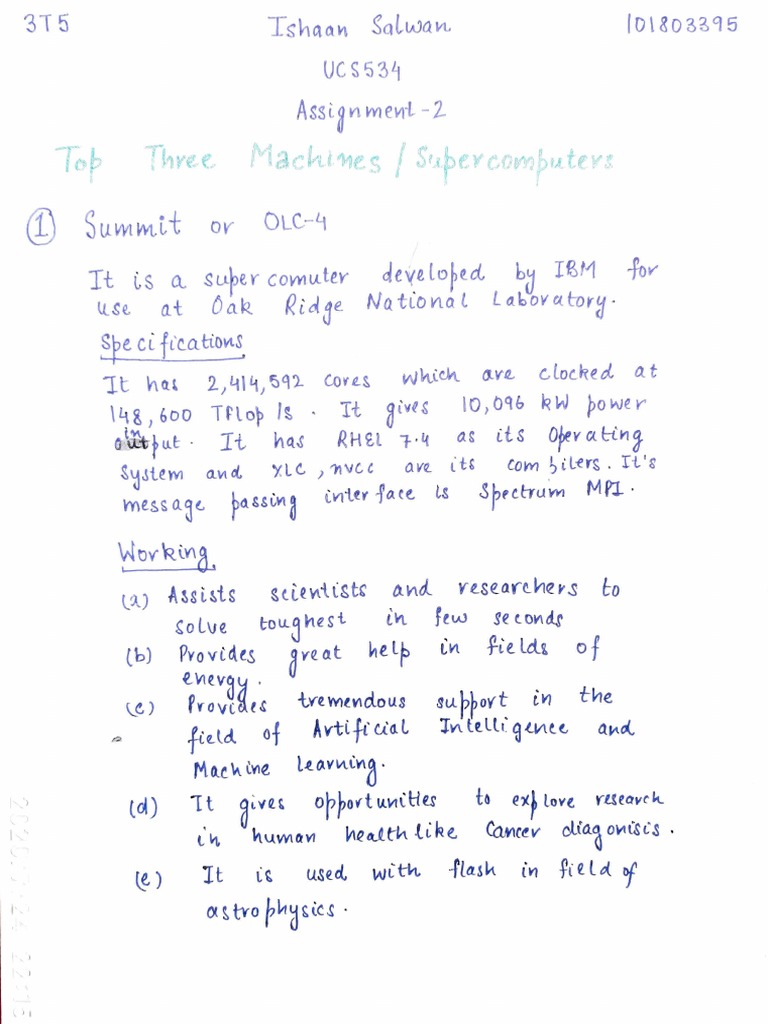 3T5 Ishaan Salwan 101803395
UCS534
Assignment-2
Top Three Machines / Supercomputers
① Summit or OLC-4
It is a super comuter developed by IBM for
use at Oak Ridge National Laboratory.
Specifications
It has 2,414,592 cores which are clocked at
148,600 Tflop/s. It gives 10,096 kW power
input. It has RHEL 7.4 as its Operating
System and XLC, nvcc are its compilers. It's
message passing interface is Spectrum MPI.
Working
(a) Assists scientists and researchers to
solve toughest in few seconds
(b) Provides great help in fields of
energy.
(c) Provides tremendous support in the
field of Artificial Intelligence and
Machine learning.
(d) It gives opportunities to explore research
in human health like Cancer diagonisis.
(e) It is used with flash in field of
astrophysics.